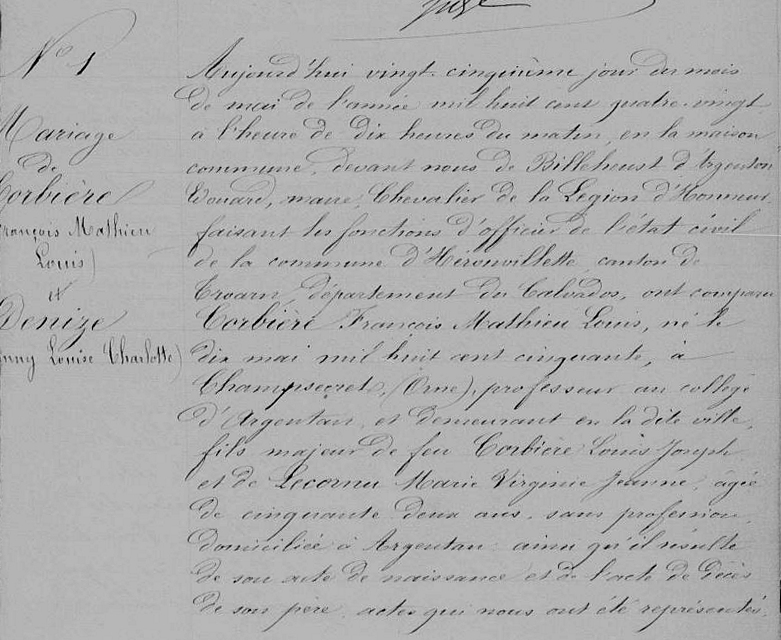 N° 1
Mariage
de
Corbière
François Mathieu
Louis)
et
Denize
nny Louise Charlotte)
Aujourd'hui vingt-cinquième jour du mois
de mai de l'année mil huit cent quatre-vingt
à l'heure de dix heures du matin, en la maison
commune, devant nous de Billeheust d'Argenton
Edouard, maire, Chevalier de la Légion d'Honneur
faisant les fonctions d'officier de l'état civil
de la commune d'Hérouvillette, canton de
Troarn, département du Calvados, ont comparu
Corbière François Mathieu Louis, né le
dix mai mil huit cent cinquante, à
Champsecret, (Orne), professeur au collège
d'Argentan, et demeurant en la dite ville,
fils majeur de feu Corbière Louis Joseph
et de Lecornu Marie Virginie Jeanne, âgée
de cinquante deux ans, sans profession,
domiciliée à Argentan: ainsi qu'il résulte
de son acte de naissance et de l'acte de décès
de son père, actes qui nous ont été représentés.